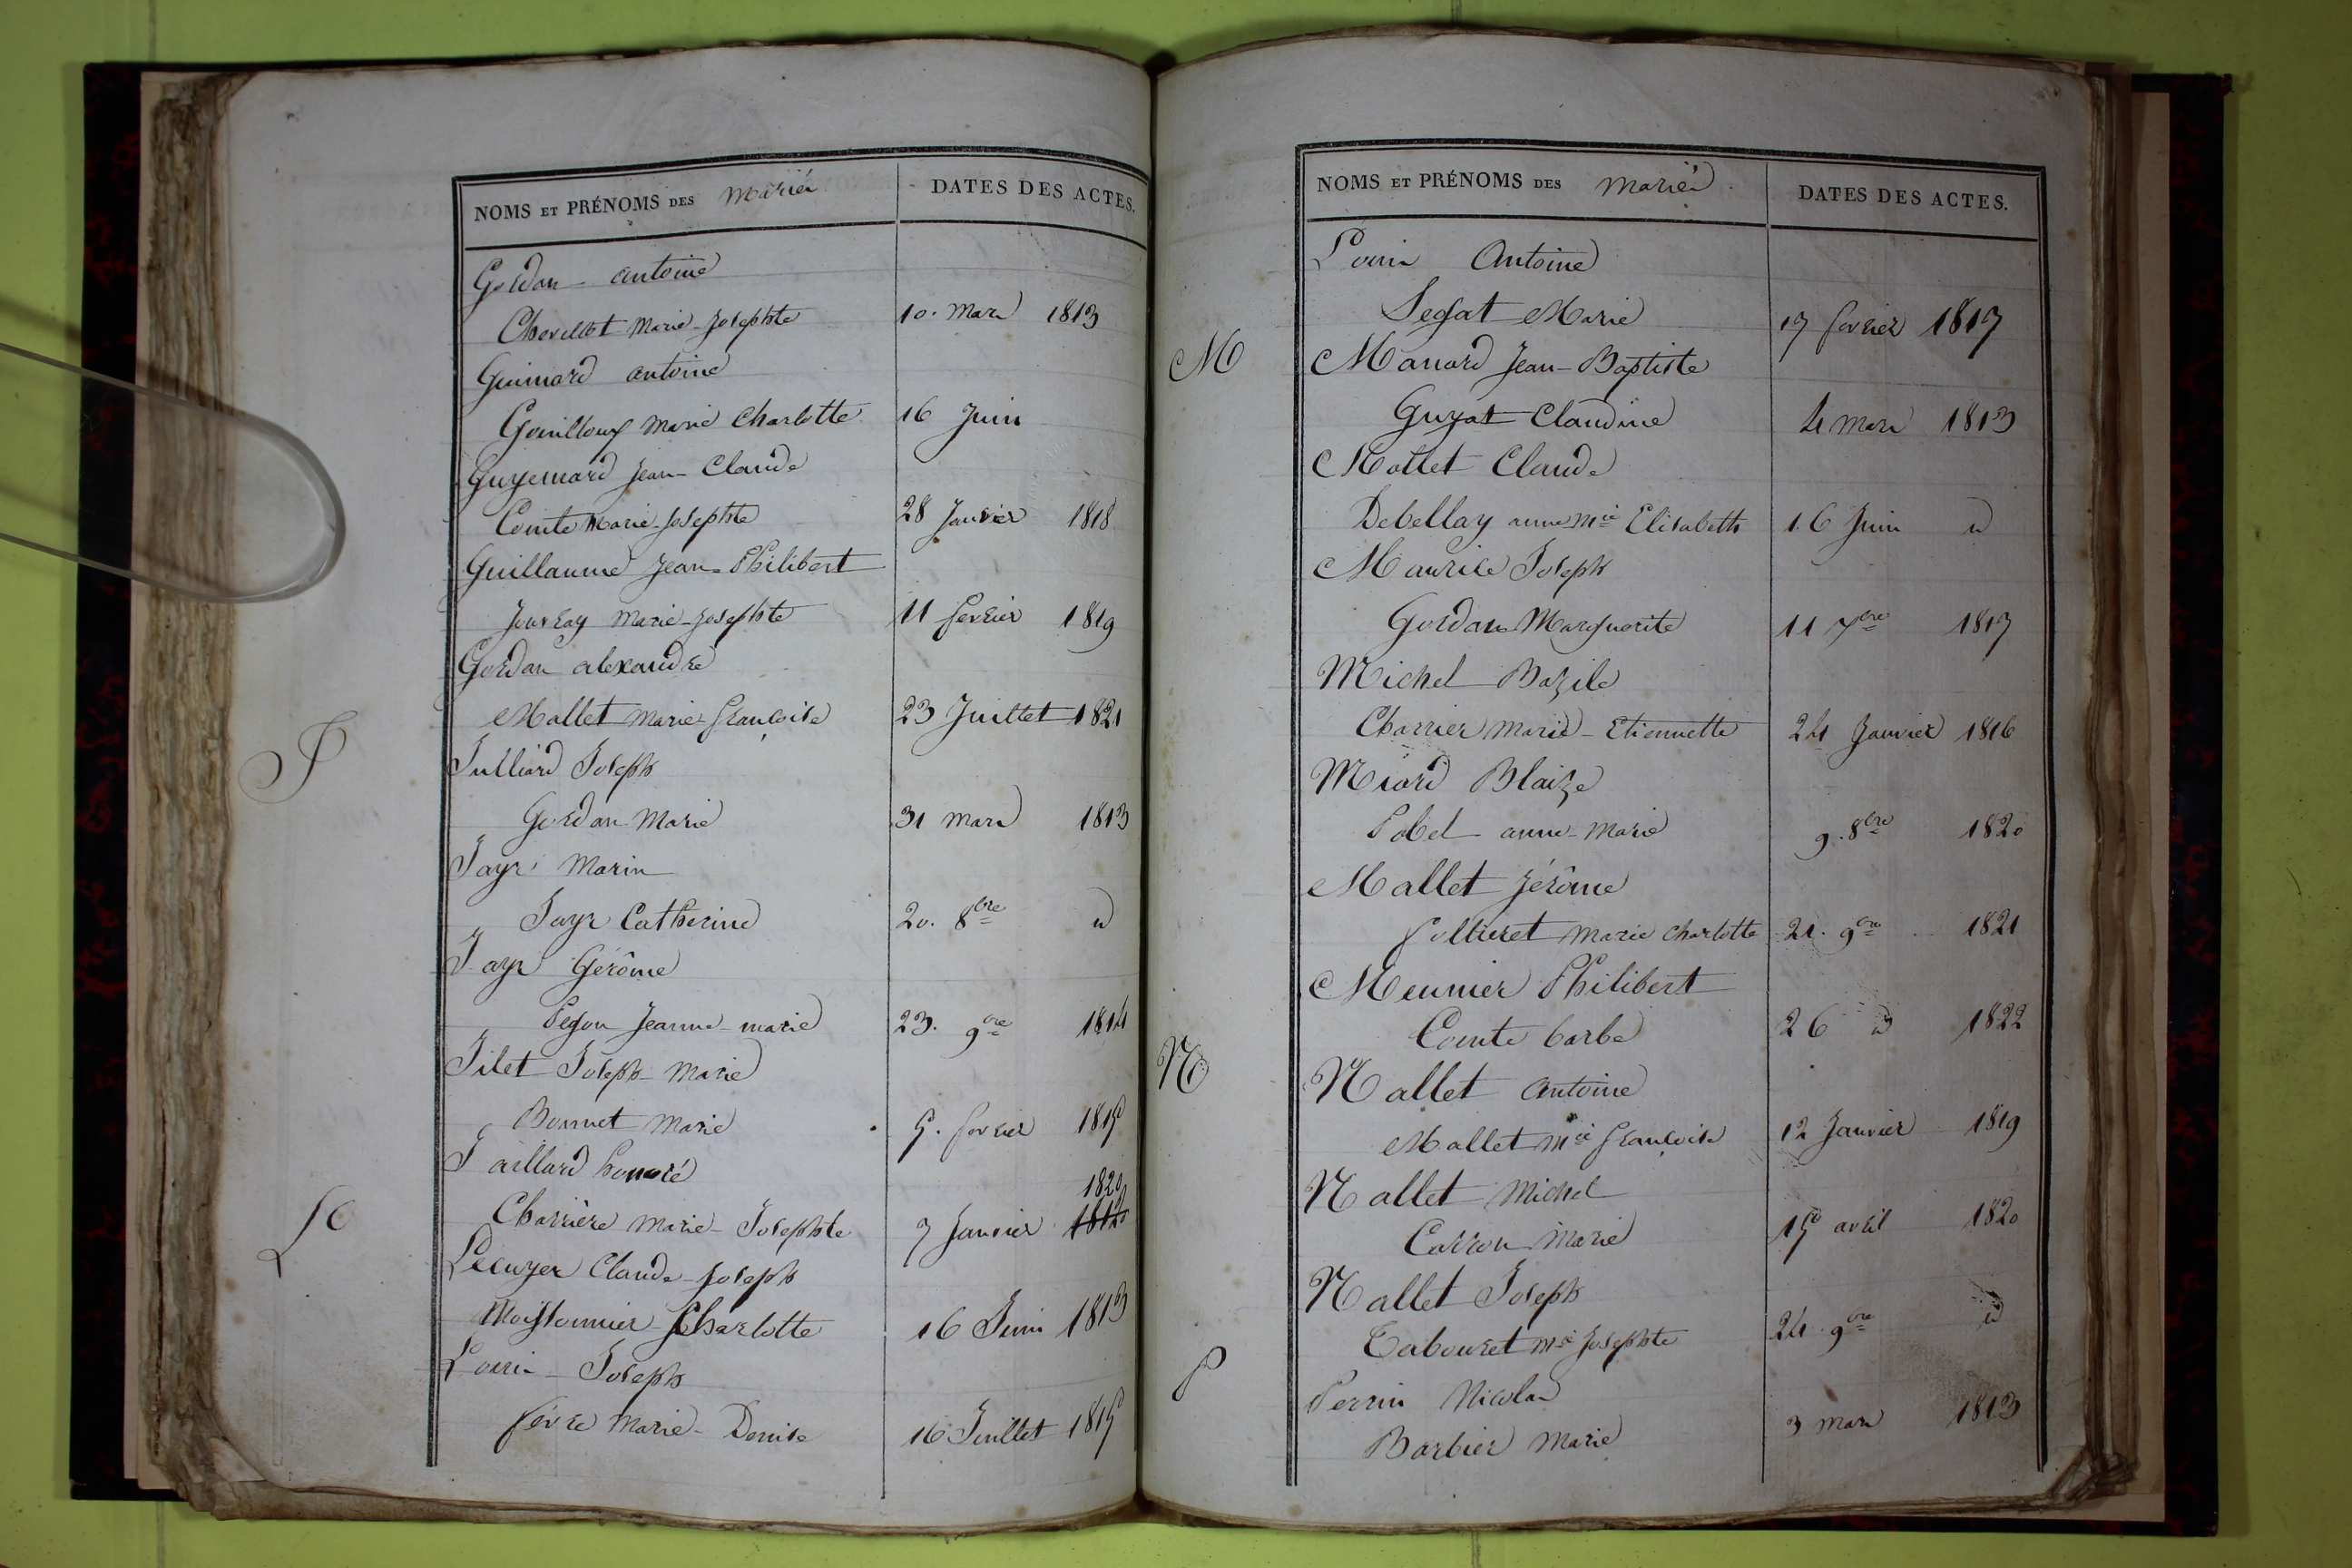 NOMS ET PRÉNOMS DES Mariés DATES DES ACTES.
Gordan antoine
Chevillot Marie-Josephte 10. Mars 1813
Guimard antoine
Gouilloux Marie Charlotte 16 Juin
Guyemard Jean-Claude
Comte Marie-Josephte 28 Janvier 1818
Guillaume Jean-Philibert
Jouvray Marie-Josephte 11 fevrier 1819
Gordan alexandre
Mallet Marie-françoise 23 Juillet 1821
J
Julliard Joseph
Gordan Marie 31 mars 1813
Jayr Marin
Jayr Catherine 20. 8bre id
Jayr Gérôme
Pegon Jeanne-marie 23. 9bre 1814
Jilet Joseph-Marie
Bonnet Marie 5. fevrier 1815
Jaillard honoré
1820
Charrière Marie-Josephte 7 Janvier 1812
L
Lecuyer Claude-Joseph
Moissonnier Charlotte 16 Juin 1813
Louis-Joseph
févre Marie-Denise 16 Juillet 1815
NOMS ET PRÉNOMS DES Mariés DATES DES ACTES.
Antoine
Segat Marie 17 fevrier 1817
M
Manard Jean-Baptiste
Guyat Claudine 4 mars 1813
Mollet Claude
Debellay anne mie Elisabeth 16 Juin id
Maurice Joseph
Gordan Marguerite 11 7bre 1817
Michel Bazile
Charrier Marie-Etiennette 24 Janvier 1816
Miard Blaize
Pobel anne-Marie 9. 8bre 1820
Mallet Jérôme
follieret Marie Charlotte 21. 9bre 1821
Meunier Philibert
Comte barbe 26 id 1822
N
Nallet antoine
Mallet Mie françoise 12 Janvier 1819
Nallet Michel
Carron Marie 15 avril 1820
Nallet Joseph
Tabouret Mie Josephte 24. 9bre id
P
Perrin Nicolas
Barbier Marie 3 mars 1813